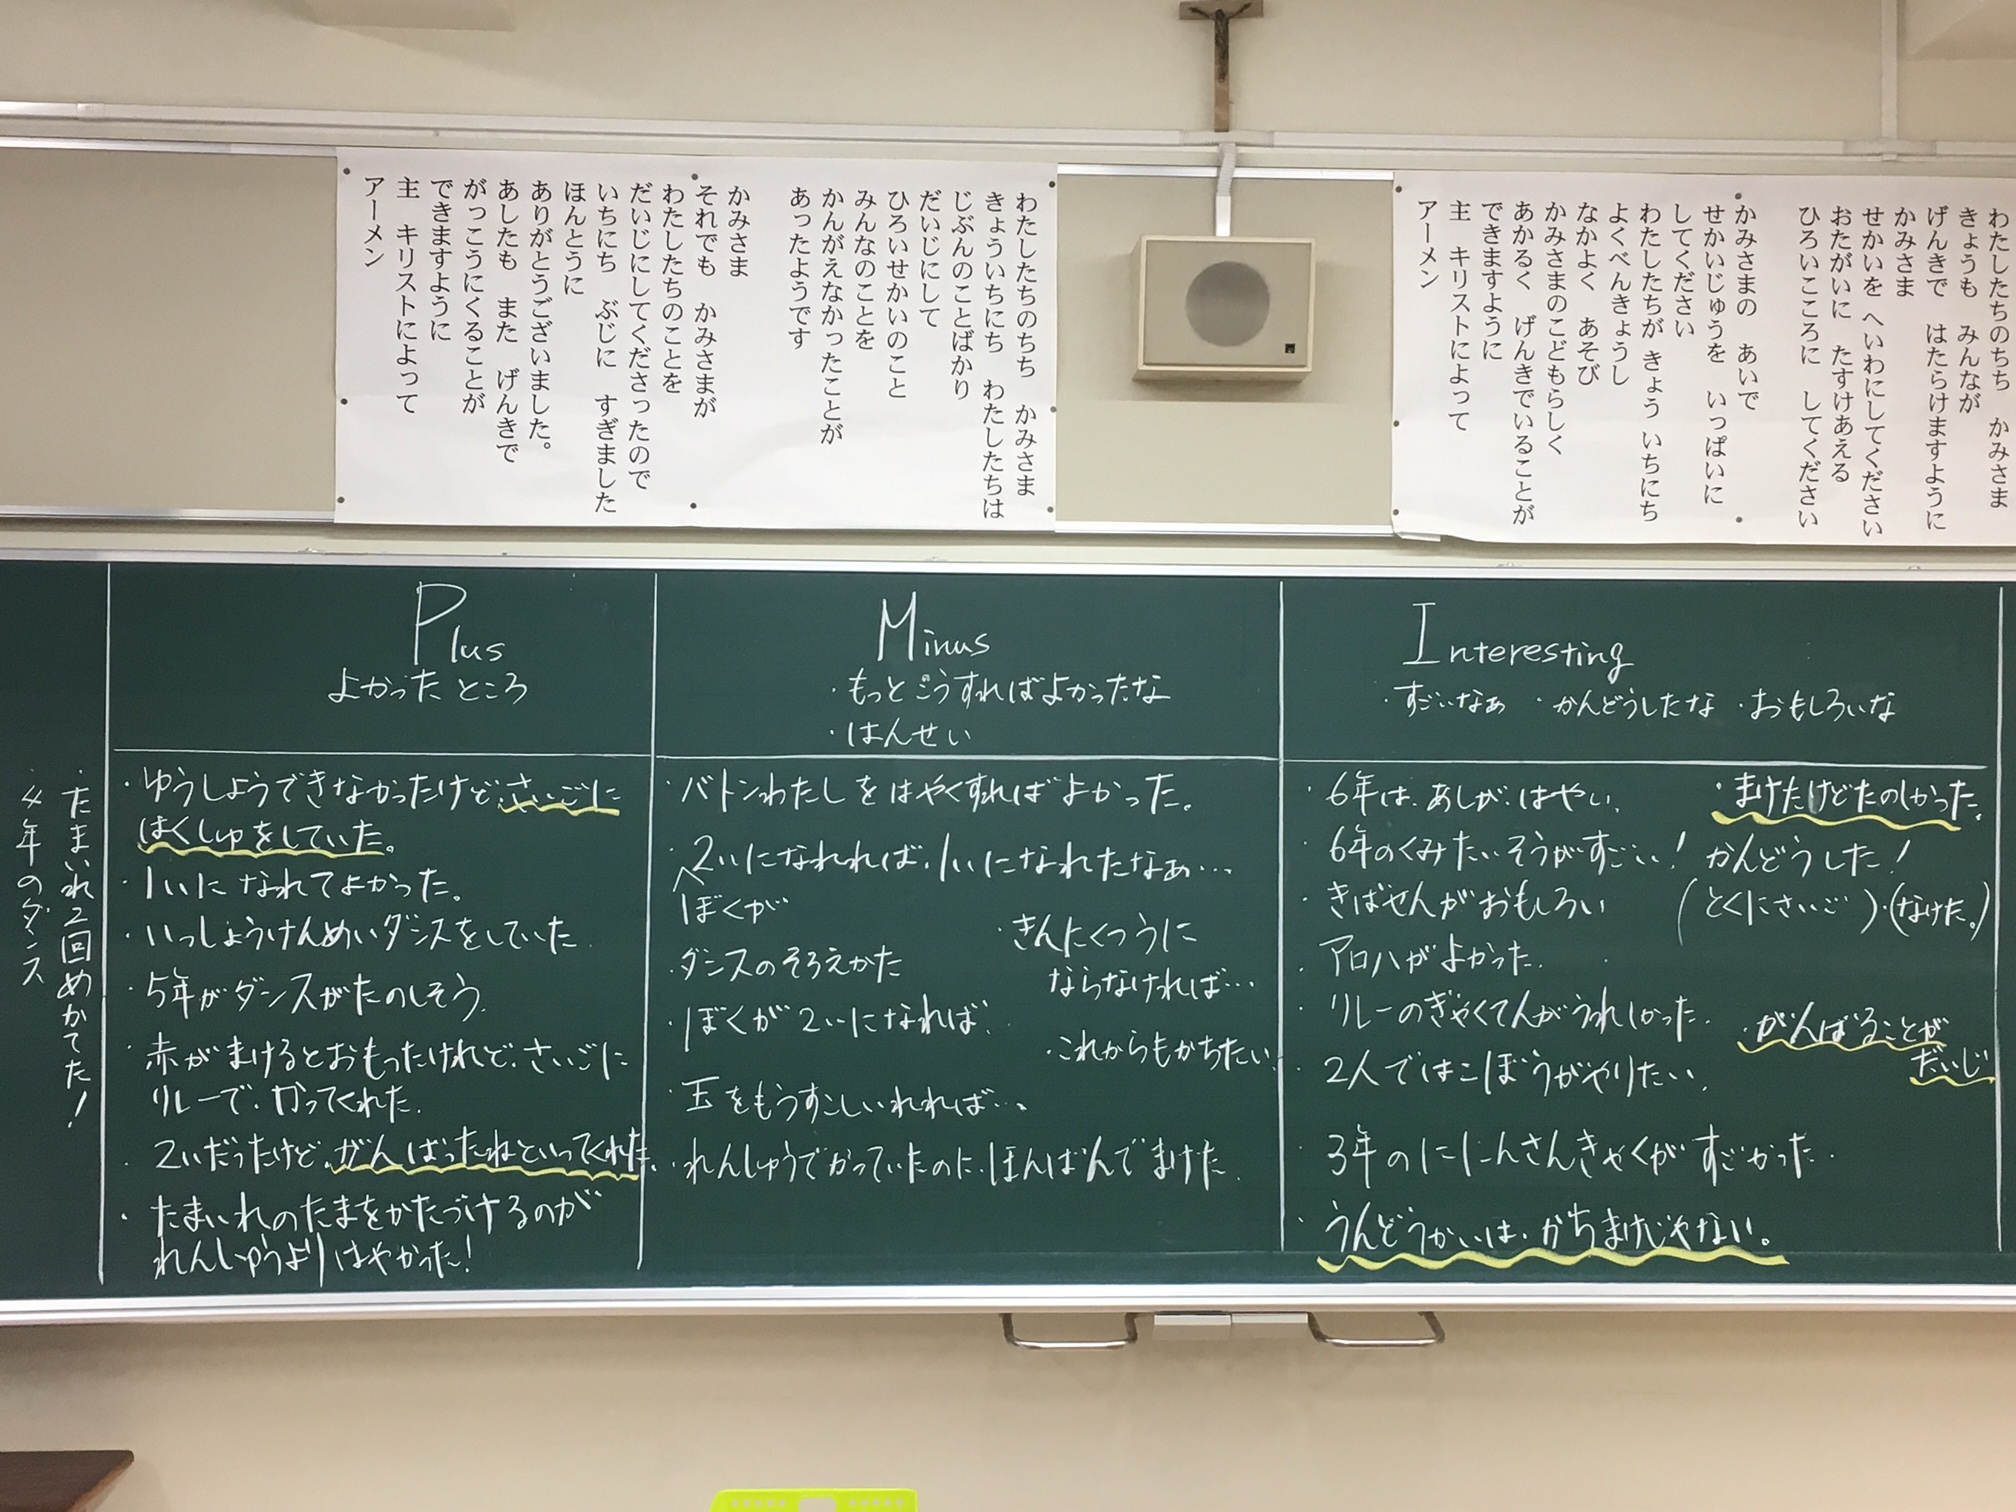 わたしたちのちち　かみさま
きょうも　みんなが
げんきで　はたらけますように
かみさま
せかいを　へいわにしてください
おたがいに　たすけあえる
ひろいこころに　してください
かみさまの　あいで
せかいじゅうを　いっぱいに
してください
わたしたちが　きょう　いちにち
よくべんきょうし
なかよく　あそび
かみさまのこどもらしく
あかるく　げんきでいることが
できますように
主　キリストによって
アーメン
わたしたちのちち　かみさま
きょういちにち　わたしたちは
じぶんのことばかり
だいじにして
ひろいせかいのこと
みんなのことを
かんがえなかったことが
あったようです
かみさま
それでも　かみさまが
わたしたちのことを
だいじにしてくださったので
いちにち　ぶじに　すぎました
ほんとうに
ありがとうございました。
あしたも　また　げんきで
がっこうにくることが
できますように
主　キリストによって
アーメン
Plus
よかったところ
・ゆうしょうできなかったけど、さいごに
はくしゅをしていた。
・1いになれてよかった。
・いっしょうけんめいダンスをしていた
・5年がダンスがたのしそう。
・赤がまけるとおもったけれど、さいごに
リレーで、かってくれた。
・2いだったけど、がんばったねといってくれた。
・たまいれのたまをかたづけるのが
れんしゅうよりはやかった!
・たまいれ2回めかてた!
・4年のダンス
Minus
・もっとこうすればよかったな
・はんせい
・バトンわたしをはやくすればよかった。
・2いになれれば、1いになれたなぁ…
ぼくが
・ダンスのそろえかた
・ぼくが2いになれば、
・玉をもうすこしいれれば…、
・れんしゅうでかっていたのに、ほんばんでまけた。
・きんにくつうに
ならなければ…
・これからもかちたい
Interesting
・すごいなぁ ・かんどうしたな ・おもしろいな
・6年は、あしが、はやい。
・6年のくみたいそうがすごい! かんどうした!
(とくにさいご)・(なけた。)
・きばせんがおもしろい
・アロハがよかった。
・リレーのぎゃくてんがうれしかった。
・2人ではこぼうがやりたい。
・3年のににんさんきゃくがすごかった・
・うんどうかいは、かちまけじゃない。
・まけたけどたのしかった。
・がんばることが
だいじ